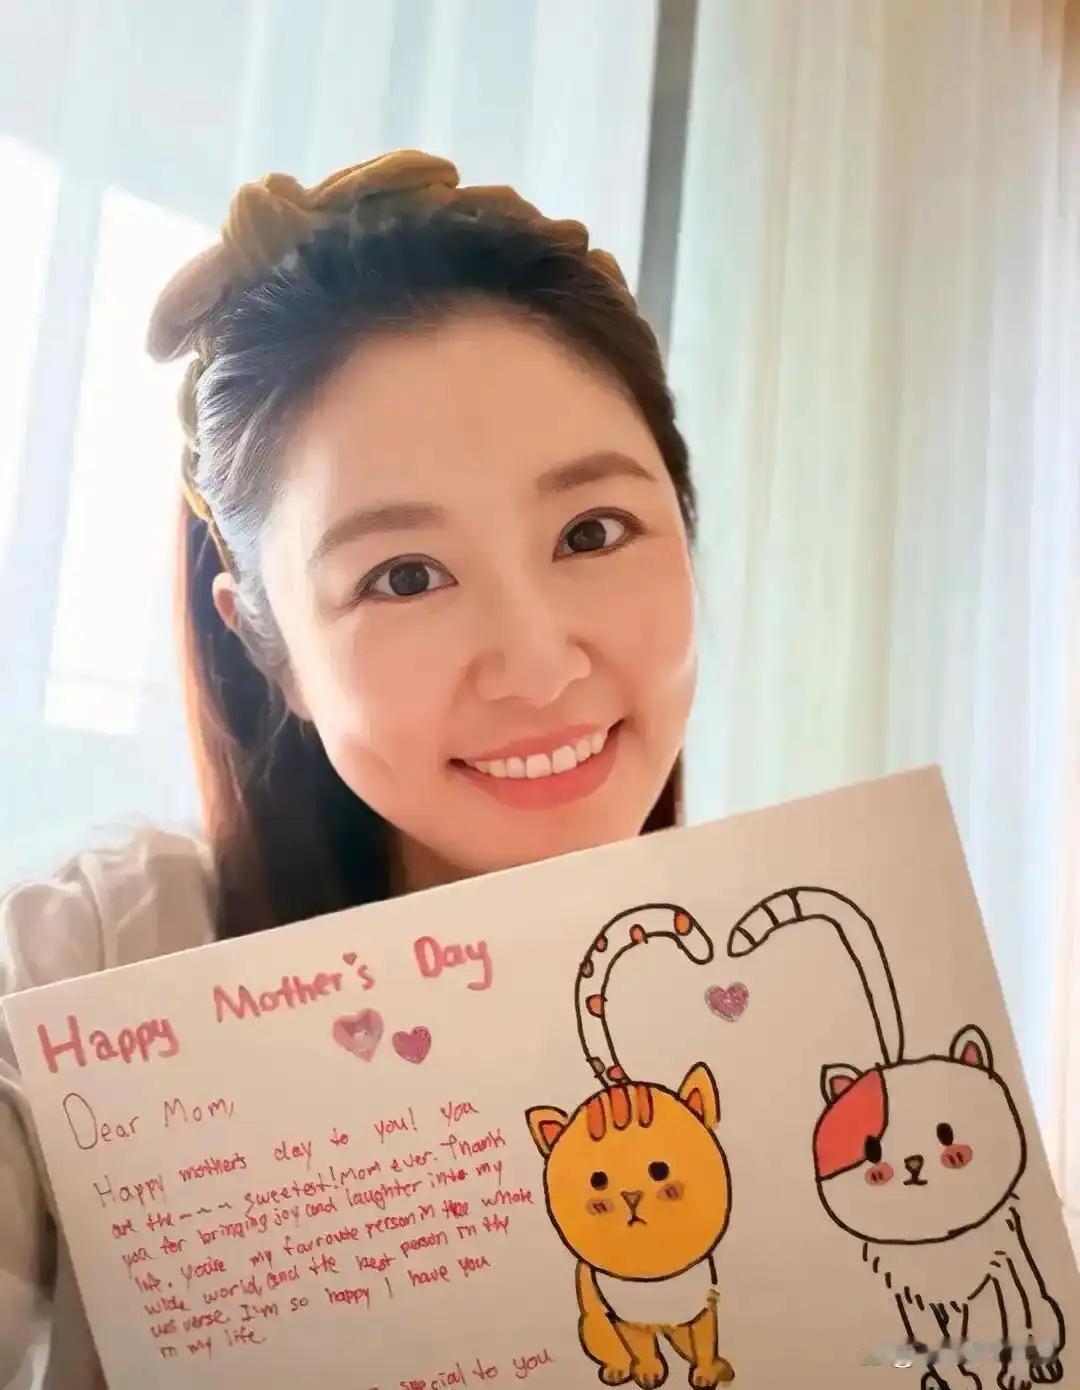 Happy Mother's Day
Dear Mom,
Happy mother's day to you! You
are the ---- sweetest! Mom ever. Thank
you for bringing joy and laughter into my
life. You're my favroute person in the whole
wide world, and the best person in thy
universe. I'm so happy I have you
in my life.
special to you